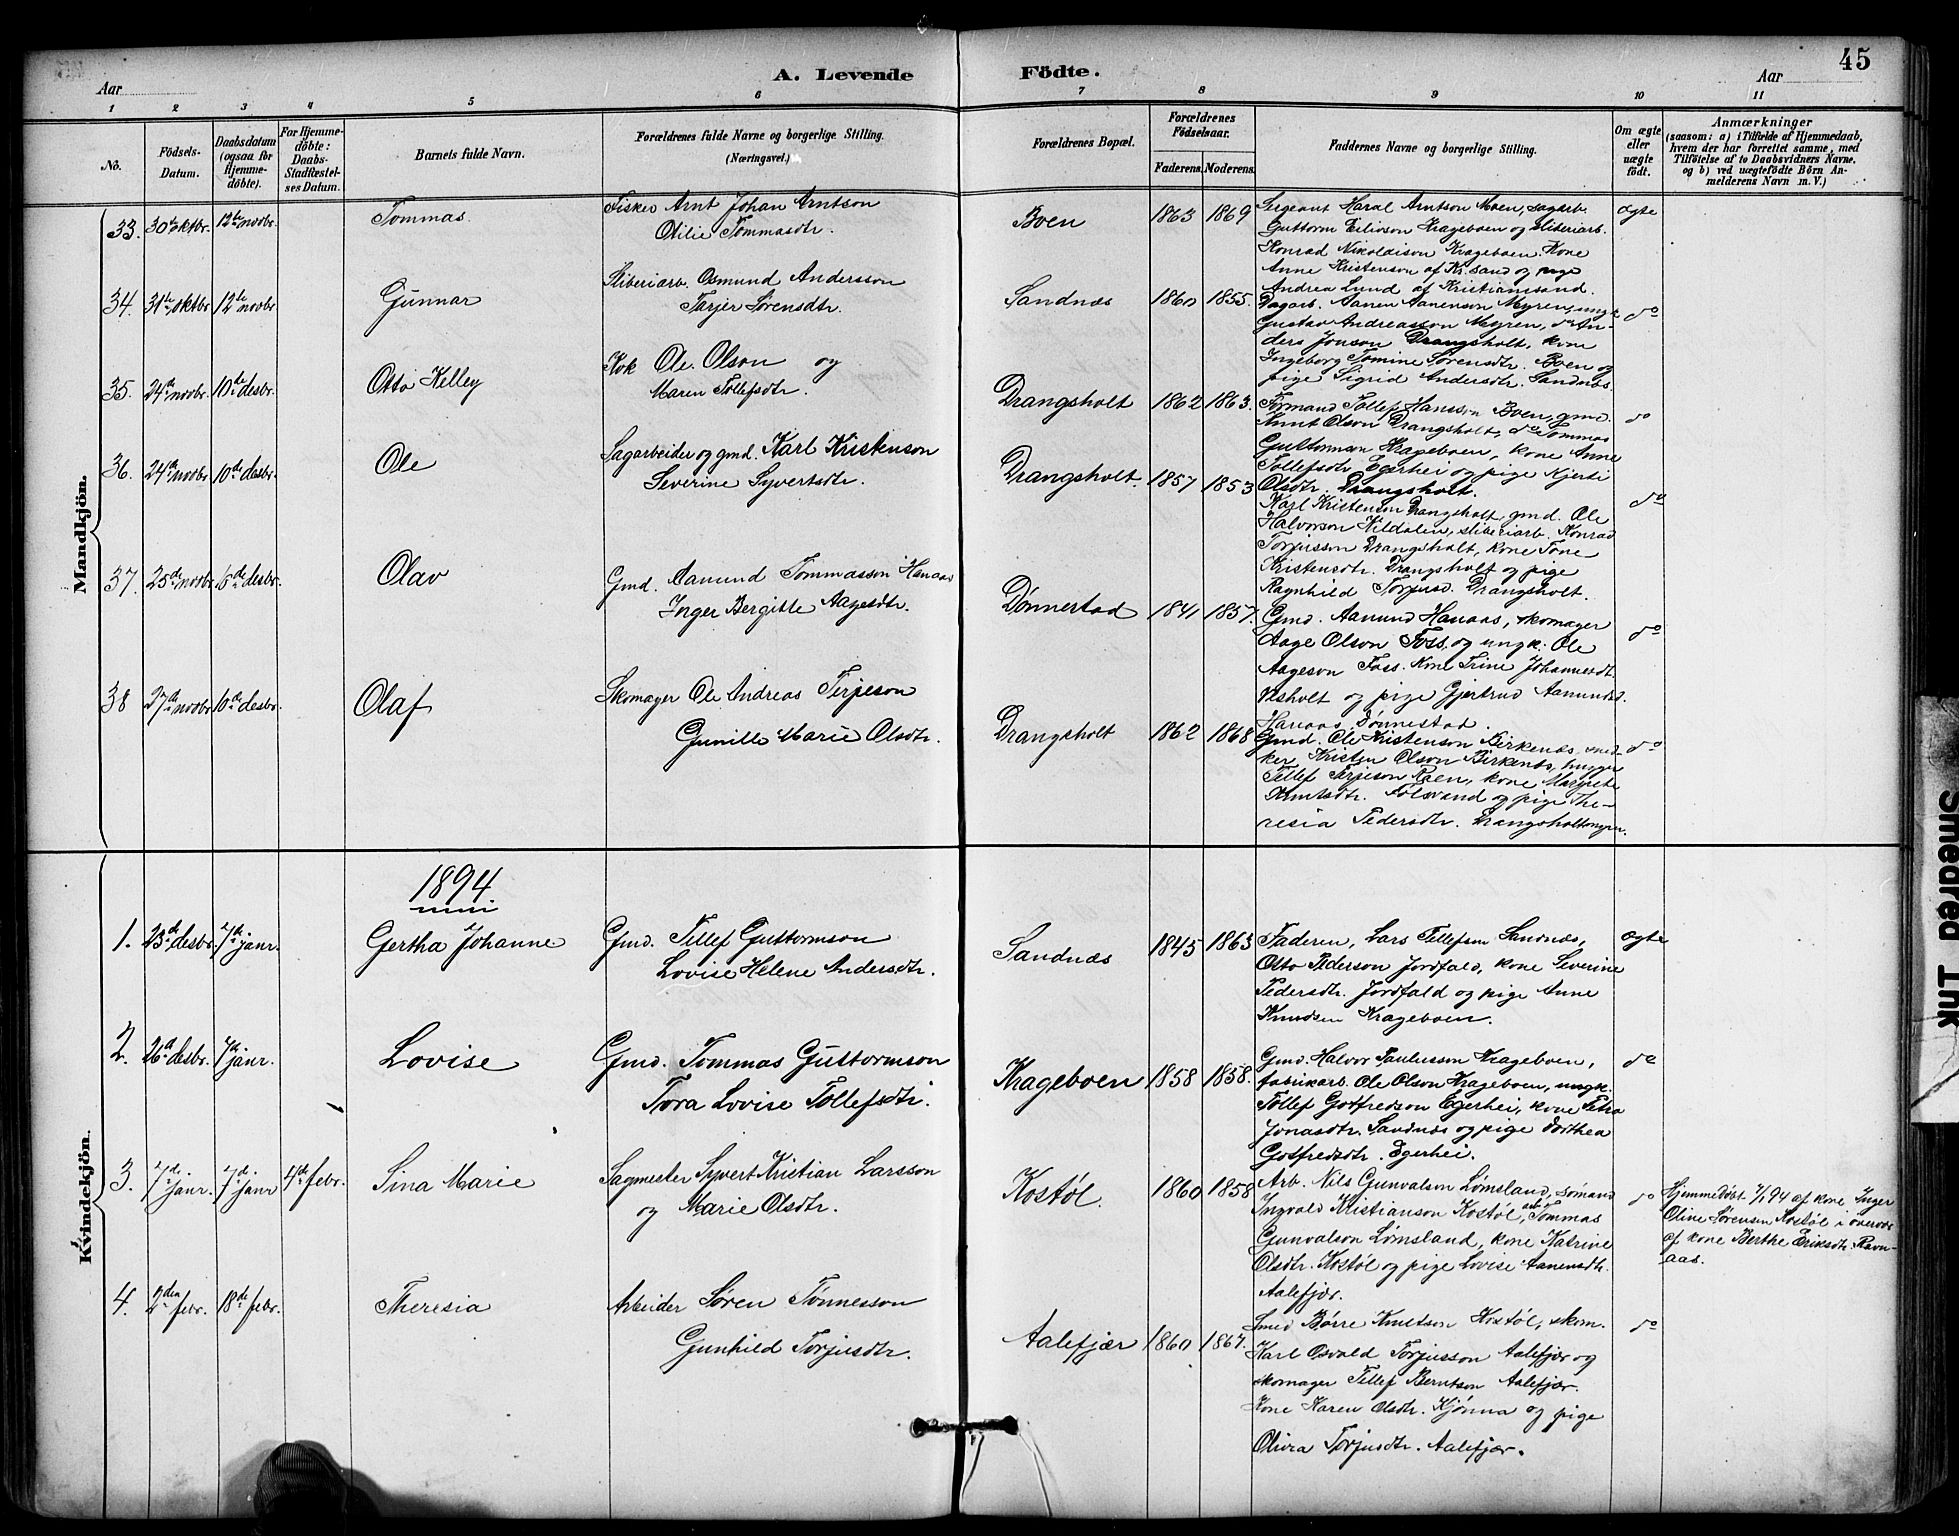 45
A. Levende Födte.
Aar
Aar
1 2 3 4 5 6 7 8 9 10 11
No.
Födsels-Datum.
Daabsdatum (ogsaa for Hjemme-döbte).
For Hjemme-döbte: Daabs-Stadfæstel-ses Datum.
Barnets fulde Navn.
Forældrenes fulde Navne og borgerlige Stilling.
(Næringsvei.)
Forældrenes Bopæl.
Forældrenes Födselsaar.
Faderens. Moderens.
Faddernes Navne og borgerlige Stilling.
Om ægte eller uægte födt.
Anmærkninger
(saasom: a) i Tilfælde af Hjemmedaab,
hvem der har forrettet samme, med
Tilföielse af to Daabsvidners Navne,
og b) ved uægtefödte Börn An-
melderens Navn m. V.)
Mandkjön.
33. 30te oktbr. 12te novbr. Tommas.
Fisker Arnt Johan Arntson
Otilie Tommasdtr.
Boen 1863 1869
Sergeant Haral Arntson Moen, sagarb.
Guttorm Eilivson Krageboen og sliberiarb.
Konrad Nikolaison Krageboen. Kone
Anne Kristenson af Kr.sand og pige
Andrea Lund af Kristianssand.
ægte
34. 31te oktbr 12te novbr. Gunnar
Sliberiarb. Osmund Andersson
Tarjer Sørensdtr.
Sandnæs 1860 1855.
Dagarb. Aanen Aanenson Myren, ungk
Gustav Andreasson Myren, do An-
ders Jonson Drangsholt, kone
Ingeborg Tomine Sørensdtr. Boen og
pige Sigrid Andersdtr. Sandnæs.
do
35. 24de novbr. 10de desbr. Otto Kelley
Kok Ole Olson og
Maren Tollefsdtr.
Drangsholt 1862 1863.
Formand Tollef Hansson Boen, gmd.
Arnt Olson Drangsholt, do Tommas
Guttormson Krageboen, kone Anne
Tollefsdtr. Egerhei og pige Kjersti
Olsdtr. Drangsholt.
do
36. 24de novbr 10de desbr. Ole
Sagarbeider og gmd. Karl Kristenson
Severine Syvertsdtr.
Drangsholt. 1857 1853
Karl Kristenson Drangsholt, gmd. Ole
Halvorson Kildalen, sliberiarb. Konrad
Torjusson Drangsholt, kone Tone
Kristensdtr. Drangsholt og pige
Ragnhild Torjusd. Drangsholt.
do
37. 25de novbr. 6de desbr. Olav
Gmd. Aamund Tommasson Hanaas
Inger Bergitte Aagesdtr.
Dønnestad 1841 1857.
Gmd. Aamund Hanaas, skomager
Aage Olson Foss, og ungk. Ole
Aageson Foss. Kone Trine Johannesdt.
Vesholt og pige Gjertrud Aamundsd.
Hanaas, Dønnestad.
do
38 27de novbr 10de desbr. Olaf
Skomager Ole Andreas Terjeson
Gunille Marie Olsdtr.
Drangsholt 1862 1868
Gmd. Ole Kristenson Birkenæs, sned-
ker Kristen Olson Birkenæs, hugger
Tellef Terjeson Raen, kone Margrete
Knutsdtr. Folsvand og pige The-
resia Pedersdtr. Drangsholtmyren.
do
Kvindekjön.
1894
1. 23de desbr. 7de janr. Gertha Johanne
Gmd. Tellef Guttormson
Lovise Helene Andersdtr.
Sandnæs 1845 1863
Faderen, Lars Tellefsen Sandnæs,
Otto Pederson Jordfald, kone Severine
Pedersdtr. Jordfald og pige Anne
Knudsen Krageboen.
ægte
2. 26de desbr. 7de janr. Lovise
Gmd. Tommas Guttormson
Tora Lovise Tollefsdtr.
Krageboen 1858 1858.
Gmd. Halvor Paulusson Krageboen,
fabrikarb. Ole Olson Krageboen, ungk.
Tollef Gotfredson Egerhei, kone Petra
Jonasdtr. Sandnæs og pige Dorthea
Gotfredsdtr. Egerhei.
do
3. 7de janr. 7de janr 4de febr. Sina Marie
Sagmester Syvert Kristian Larsson
og Marie Olsdtr.
Kostøl. 1860 1858
Arb. Nils Gunvalson Lømsland, sømand
Ingvald Kristianson Kostøl, arb. Tommas
Gunvalson Lømsland, kone Katrine
Olsdtr. Kostøl og pige Lovise Aanensdtr.
Aalefjær.
do
Hjemmedøbt 7/1 94 af kone Inger
Oline Sørensen Kostøl i overvær
af kone Berthe Eriksdtr. Ravn-
aas.
4. 2den febr. 18de febr. Theresia
Arbeider Søren Tønnesson
Gunhild Torjusdtr.
Aalefjær 1860 1867.
Smed Børre Knutson Kostøl, skom.
Karl Osvald Torjusson Aalefjær og
skomager Tellef Berntson Aalefjær.
Kone Karen Olsdtr. Kjønna og pige
Olivia Torjusdtr. Aalefjær.
do
Smeared Ink